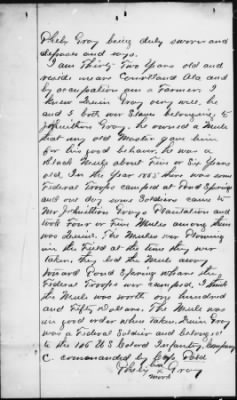 Pheby Gray being duly sworn and
deposes and says.
I am Thirty Two Years old and
reside near Courtland Ala and
by occupation am a Farmer. I
knew Irwin Gray very well, he
and I both wer Slaves belonging to
Johnithon Gray, he owned a Mule
that my old Master gave him
for his good behavior, he was a
Black Mule about Five or Six Years
old. In the Year 1863 there was some
Federal Troops camped at Pond Spring
and one day some Soldiers came to
Mr Johnithon Grays Plantation and
took Four or Five Mules among them
was Irwins. The Mules wer Plowing
in the Field at the time they wer
taken, they led the Mule away
toward Pond Spring where the
Federal Troops wer camped, I think
the Mule was worth one hundred
and Fifty Dollars. The Mule was
in good order when Taken. Irwin Gray
was a Federal Soldier and belonged
to the 106 U.S Colord Infantry, Company
C commanded by Cap
Pheby Gray
mark